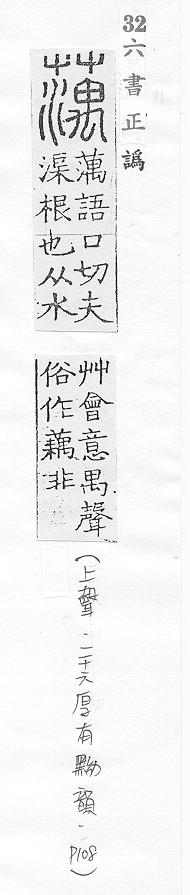 32六書正譌
蕅
蕅語口切夫
渠根也从水
艸會意禺聲
俗作藕非
(上聲.二十六厚有黝韻.P108)